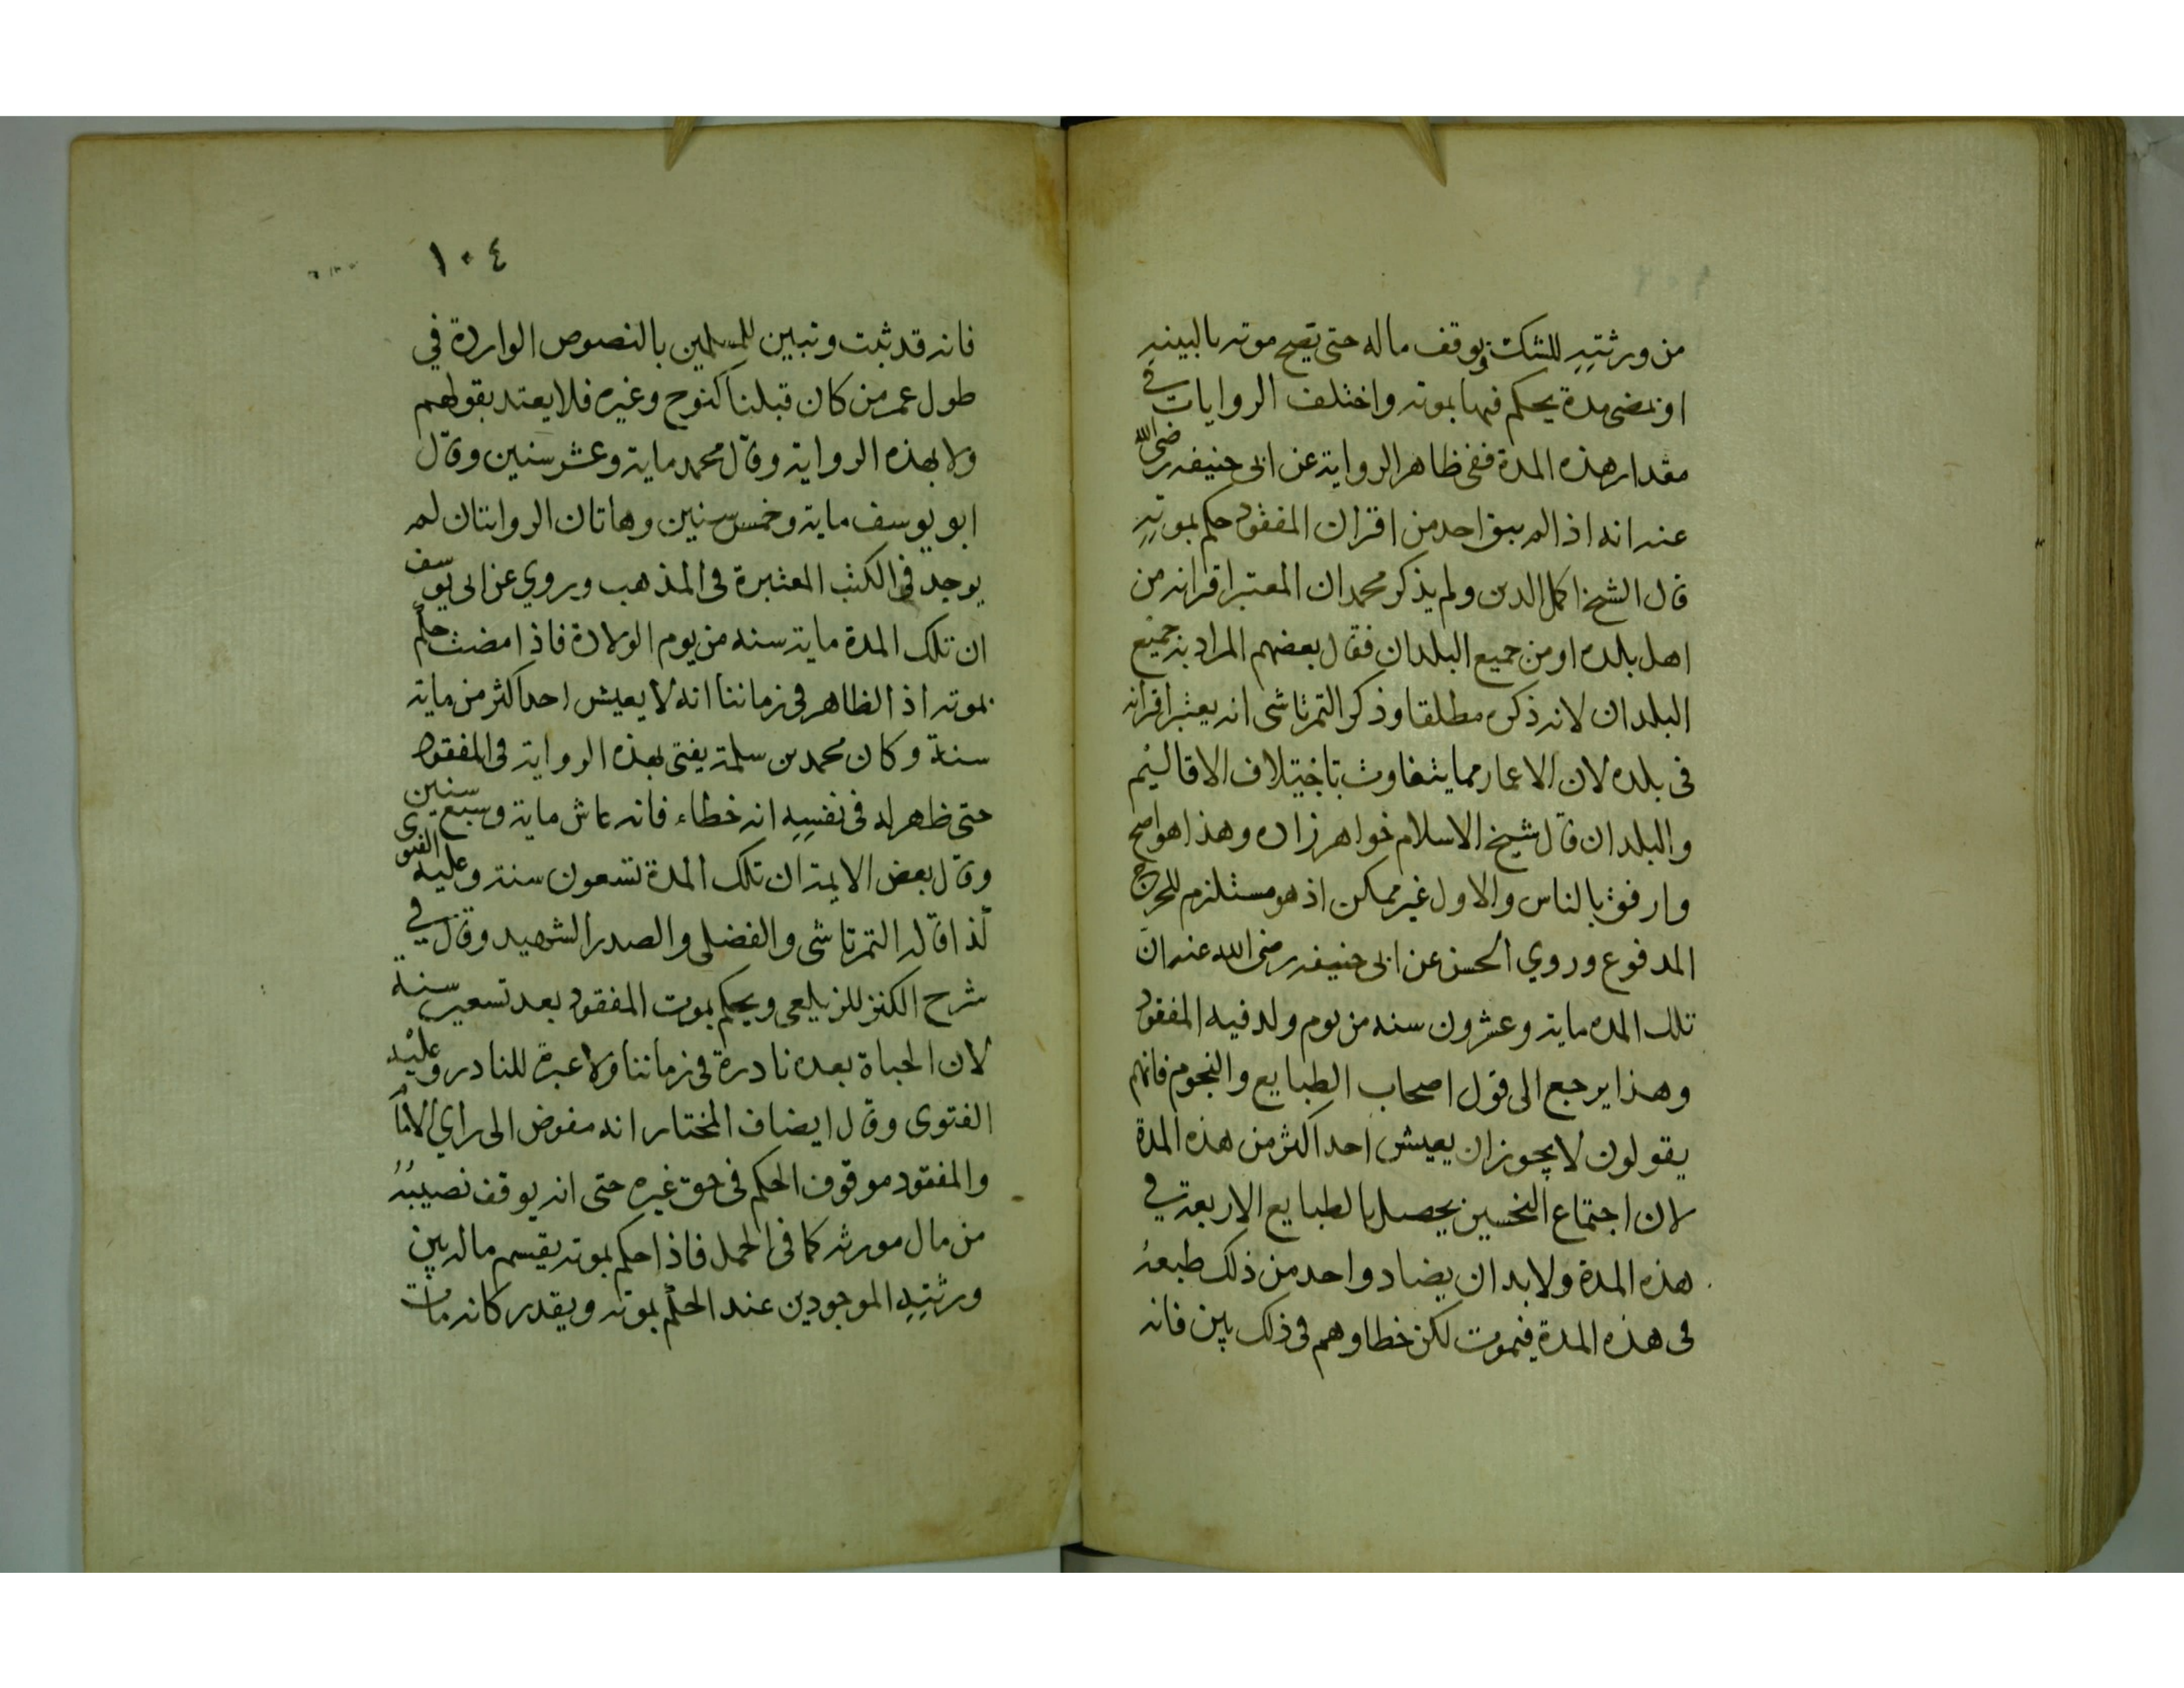 من ورثتِهِ للشك ويوقف ماله حتى يصح موته بالبينهِ
او تمضى مدة يحكم فيها بموته واختلف الروايات في
مقدار هذه المدة ففى ظاهر الرواية عن ابى حنيفه رضى الله
عنه انه اذا لم يبق احد من اقران المفقود حكم بموتهِ
قال الشيخ اكمل الدين ولم يذكر محمد ان المعتبر اقرانه من
اهل بلده او من جميع البلدان فقال بعضهم المراد به جميع
البلدان لانه ذكره مطلقا وذكر التمرتاشى انه يعتبر اقرانه
فى بلده لان الاعمار مما يتفاوت باختيلاف الاقاليم
والبلدان قال شيخ الاسلام خواهر زاده وهذا هو اصح
وارفق بالناس والاول غير ممكن اذ هو مستلزم للحرج
المدفوع وروي الحسن عن ابى حنيفه رضى الله عنه ان
تلك المده ماية وعشرون سنه من يوم ولد فيه المفقود
وهذا يرجع الى قول اصحاب الطبايع والنجوم فانهم
يقولون لا يجوز ان يعيش احد اكثر من هذه المدة
لان اجتماع النحسين يحصل بالطبايع الاربعة في
هذه المدة ولا بد ان يضاد واحد من ذلك طبعهُ
فى هذه المدة فيموت لكن خطاوهم فى ذلك بين فانه
١٠٤
فانه قد ثبت وتبين للمسلمين بالنصوص الواردة في
طول عمر من كان قبلنا كنوح وغيره فلا يعتد بقولهم
ولا بهذه الرواية وقال محمد ماية وعشر سنين وقال
ابو يوسف ماية وخمس سنين وهاتان الروايتان لم
يوجد فى الكتب المعتبرة فى المذهب وروي عن ابى يوسف
ان تلك المدة ماية سنه من يوم الولادة فاذا مضت حكم
بموته اذ الظاهر فى زماننا انه لا يعيش احد اكثر من ماية
سنة وكان محمد بن سلمة يفتى بهذه الرواية فى المفقود
حتى ظهر له فى نفسِهِ انه خطاء فانه عاش ماية وسبع سنين
وقال بعض الايمة ان تلك المدة تسعون سنة وعليه الفتوى
كذا قاله التمرتاشى والفضلى والصدر الشهيد وقال في
شرح الكنز للزيلعى ويحكم بموت المفقود بعد تسعين سنة
لان الحياة بعده نادرة فى زماننا ولا عبرة للنادر وعليه
الفتوى وقال ايضاف المختار انه مفوض الى راي الاما
والمفقود موقوف الحكم فى حق غيره حتى انه يوقف نصيبهُ
من مال مورثه كما فى الحمل فاذا حكم بموته يقسم ماله بين
ورثتِهِ الموجودين عند الحكم بموته ويقدر كانه مات